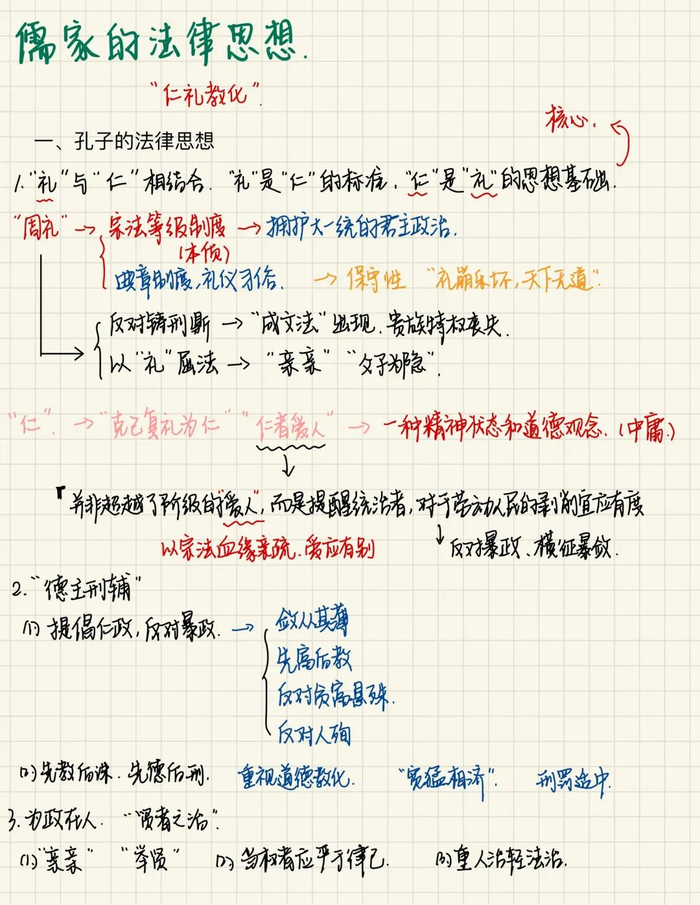 儒家的法律思想.
"仁礼教化".
核心.
一、孔子的法律思想
1."礼"与"仁"相结合. "礼"是"仁"的标准,"仁"是"礼"的思想基础.
"周礼"→ 宗法等级制度 → 拥护大一统的君主政治.
(本质)
典章制度,礼仪习俗. → 保守性 "礼崩乐坏,天下无道".
反对铸刑鼎 → "成文法"出现.贵族特权丧失.
以"礼"屈法 → "亲亲" "父子为隐".
"仁". →"克己复礼为仁" "仁者爱人" → 一种精神状态和道德观念.(中庸.)
「并非超越了阶级的"爱人",而是提醒统治者,对于劳动人民的剥削宜应有度
以宗法血缘亲疏.爱应有别 ↓反对暴政、横征暴敛.
2."德主刑辅"
(1) 提倡仁政,反对暴政. → 敛从其薄
先富后教
反对贫富悬殊.
反对人殉
(2) 先教后诛.先德后刑. 重视道德教化. "宽猛相济". 刑罚适中.
3.为政在人. "贤者之治".
(1)"亲亲" "举贤" (2) 当权者应严于律己. (3)重人治轻法治.